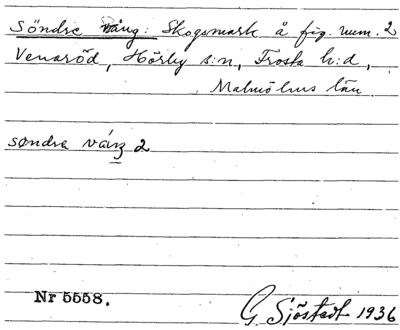 Söndre vång: Skogsmark å fig. num. 2
Venaröd, Hörby s:n, Frosta h:d,
Malmöhus län.
søndra váŋ 2
Nr 5558.
G. Sjöstedt 1936